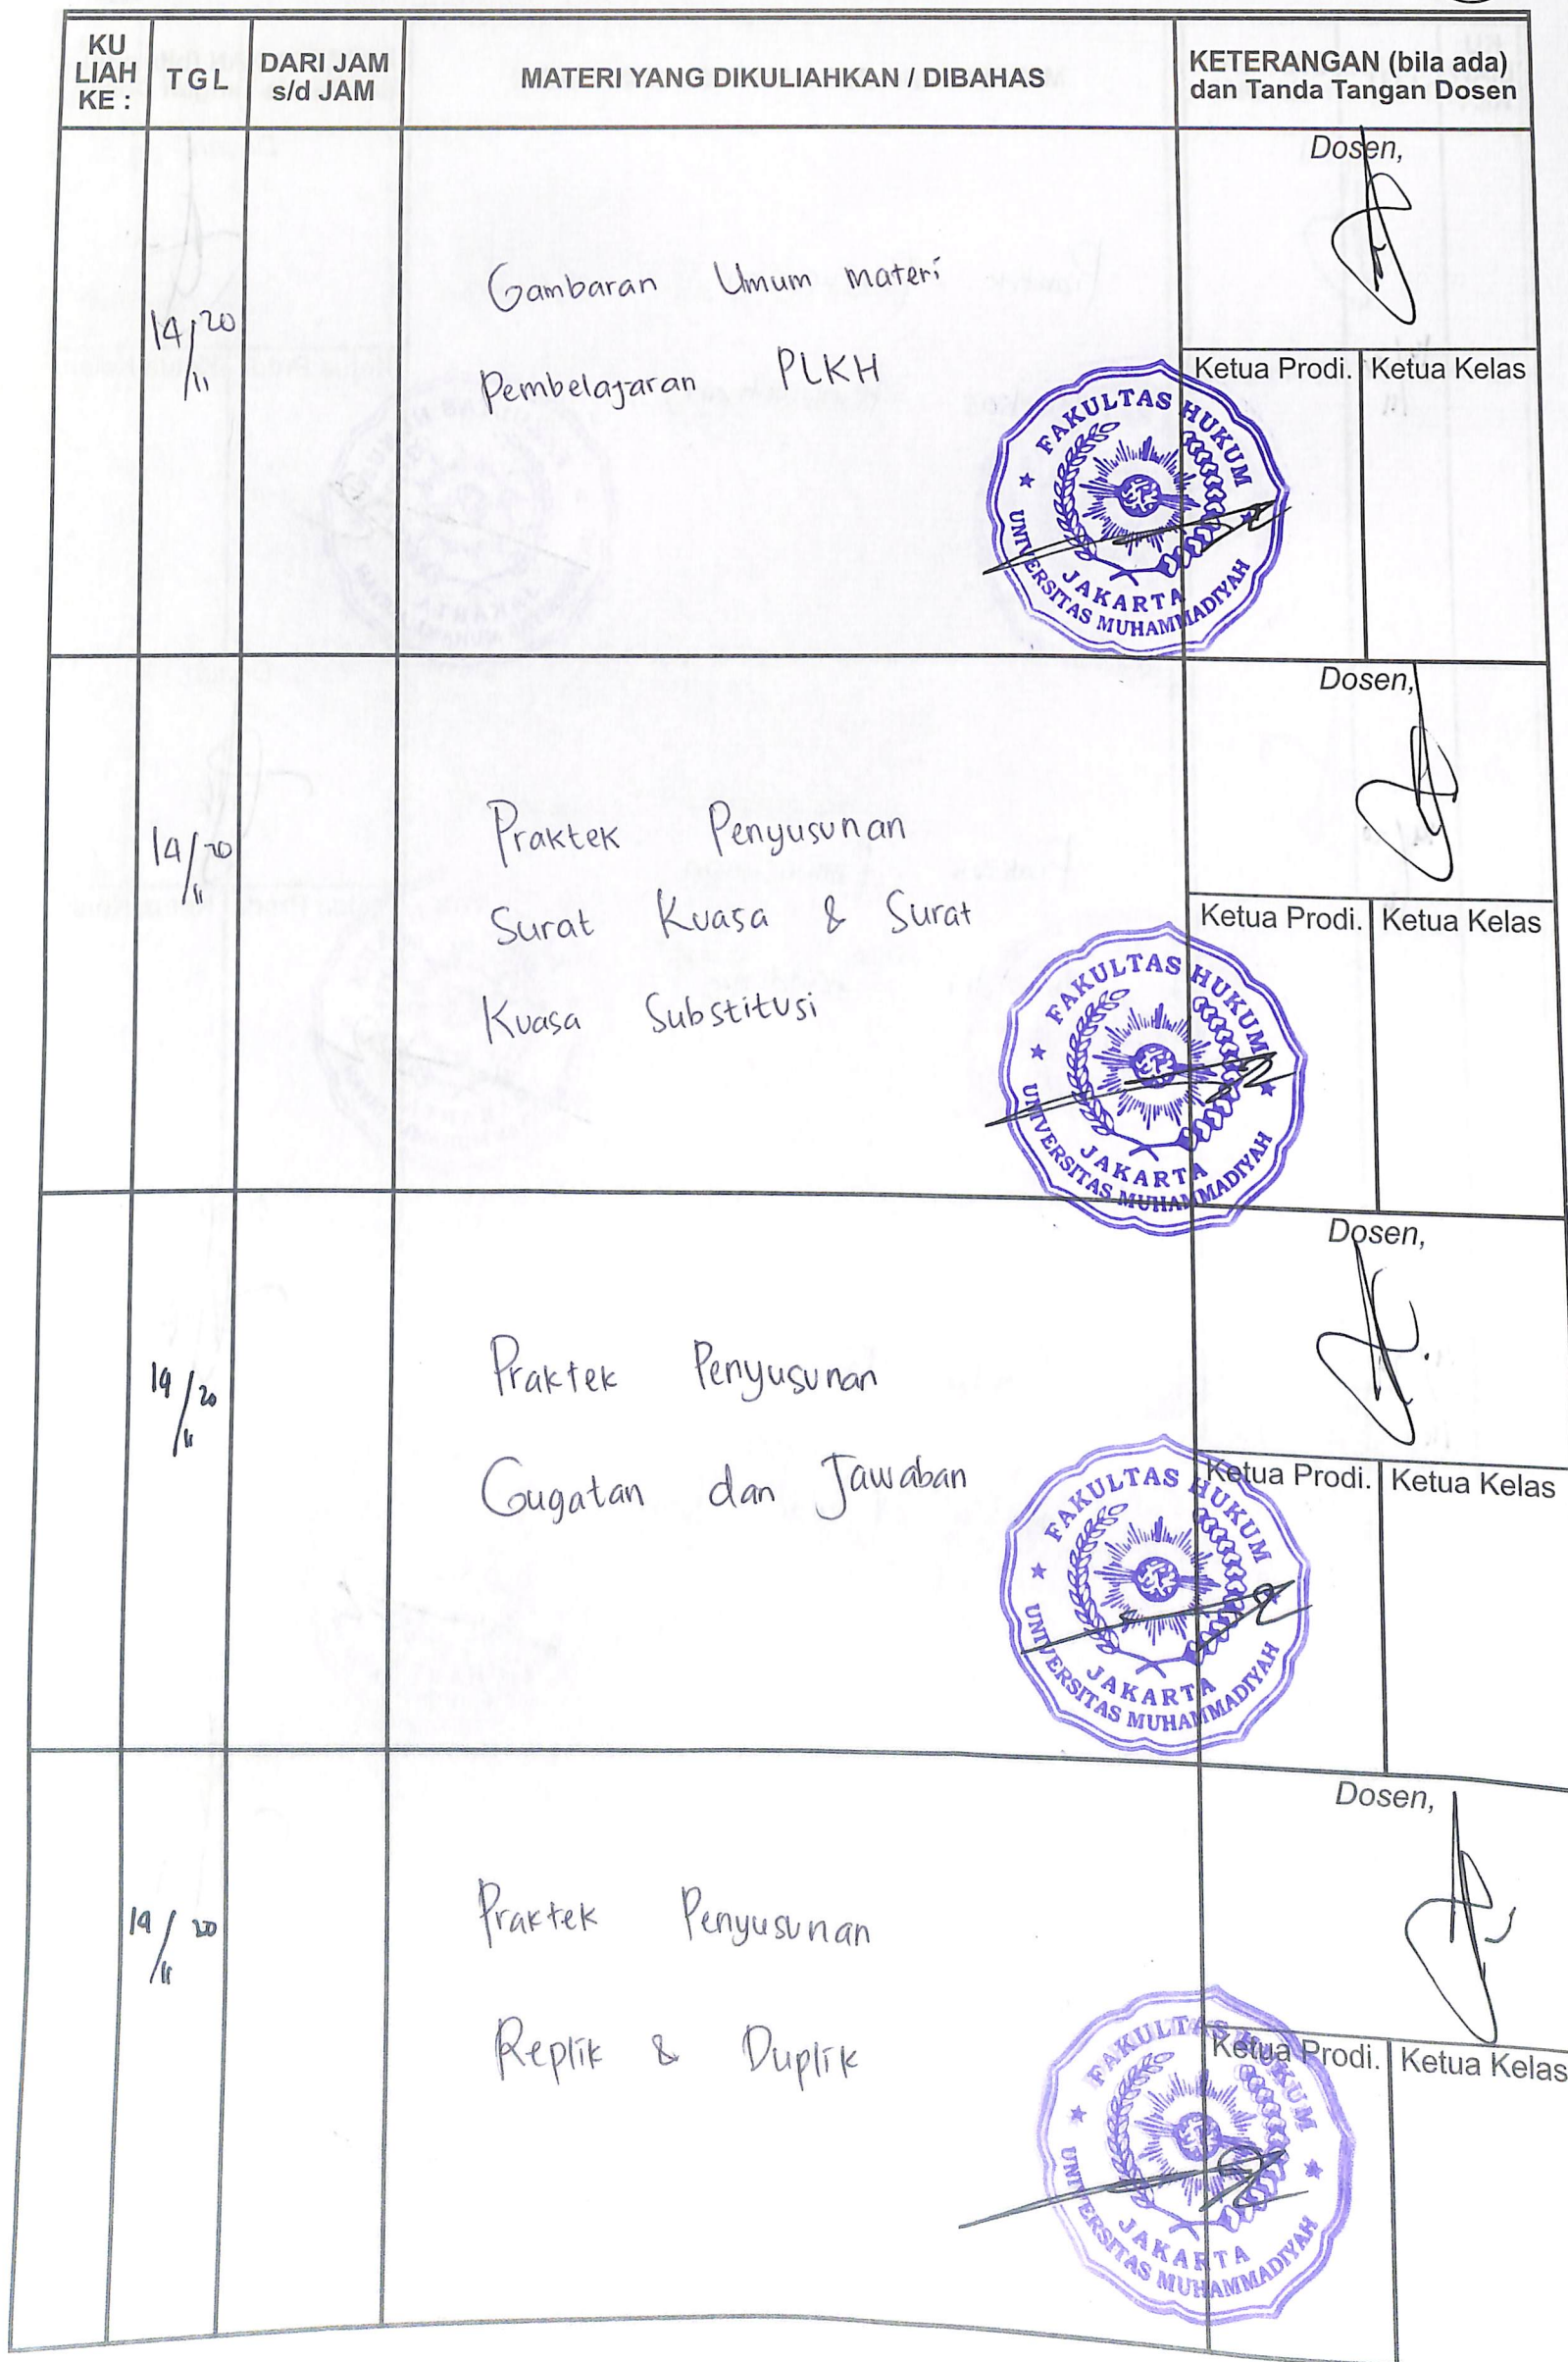 KU
LIAH
KE :
TGL
DARI JAM
s/d JAM
MATERI YANG DIKULIAHKAN / DIBAHAS
KETERANGAN (bila ada)
dan Tanda Tangan Dosen
14/20
11
Gambaran Umum materi
Pembelajaran PLKH
Dosen,
Ketua Prodi. Ketua Kelas
FAKULTAS HUKUM
JAKARTA
UNIVERSITAS MUHAMMADIYAH
14/20
11
Praktek Penyusunan
Surat Kuasa & Surat
Kuasa Substitusi
Dosen,
Ketua Prodi. Ketua Kelas
FAKULTAS HUKUM
JAKARTA
UNIVERSITAS MUHAMMADIYAH
19/20
11
Praktek Penyusunan
Gugatan dan Jawaban
Dosen,
Ketua Prodi. Ketua Kelas
FAKULTAS HUKUM
JAKARTA
UNIVERSITAS MUHAMMADIYAH
19/20
11
Praktek Penyusunan
Replik & Duplik
Dosen,
Ketua Prodi. Ketua Kelas
FAKULTAS HUKUM
JAKARTA
UNIVERSITAS MUHAMMADIYAH